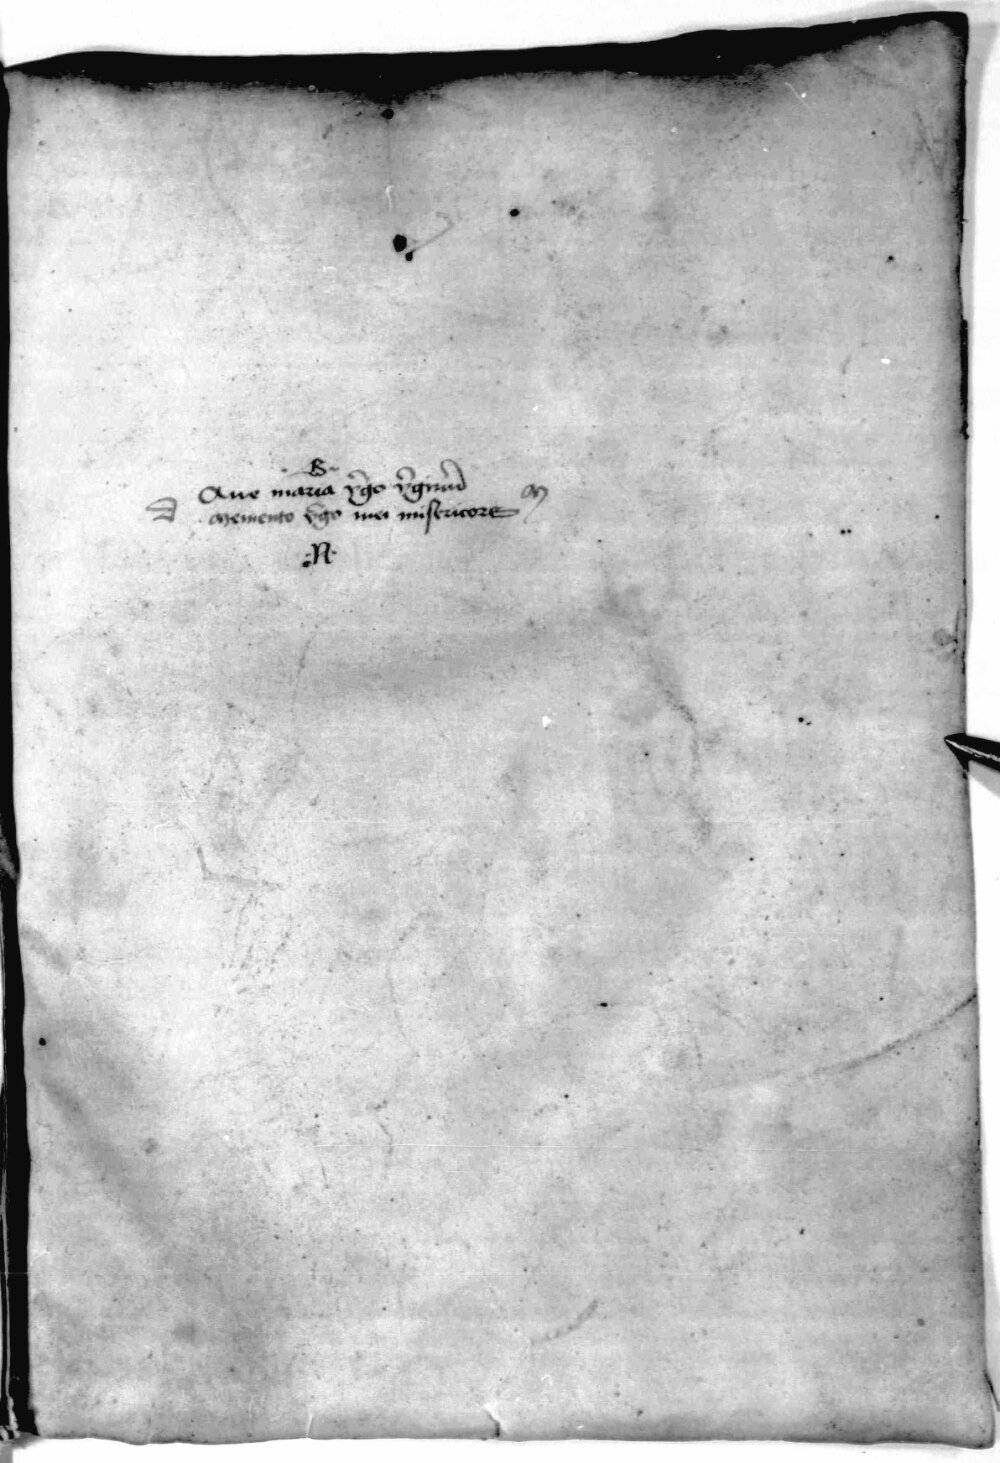 ·S·
Aue maria v̾go v̾ginũ
D memento v̾go mei misericors M
·N·